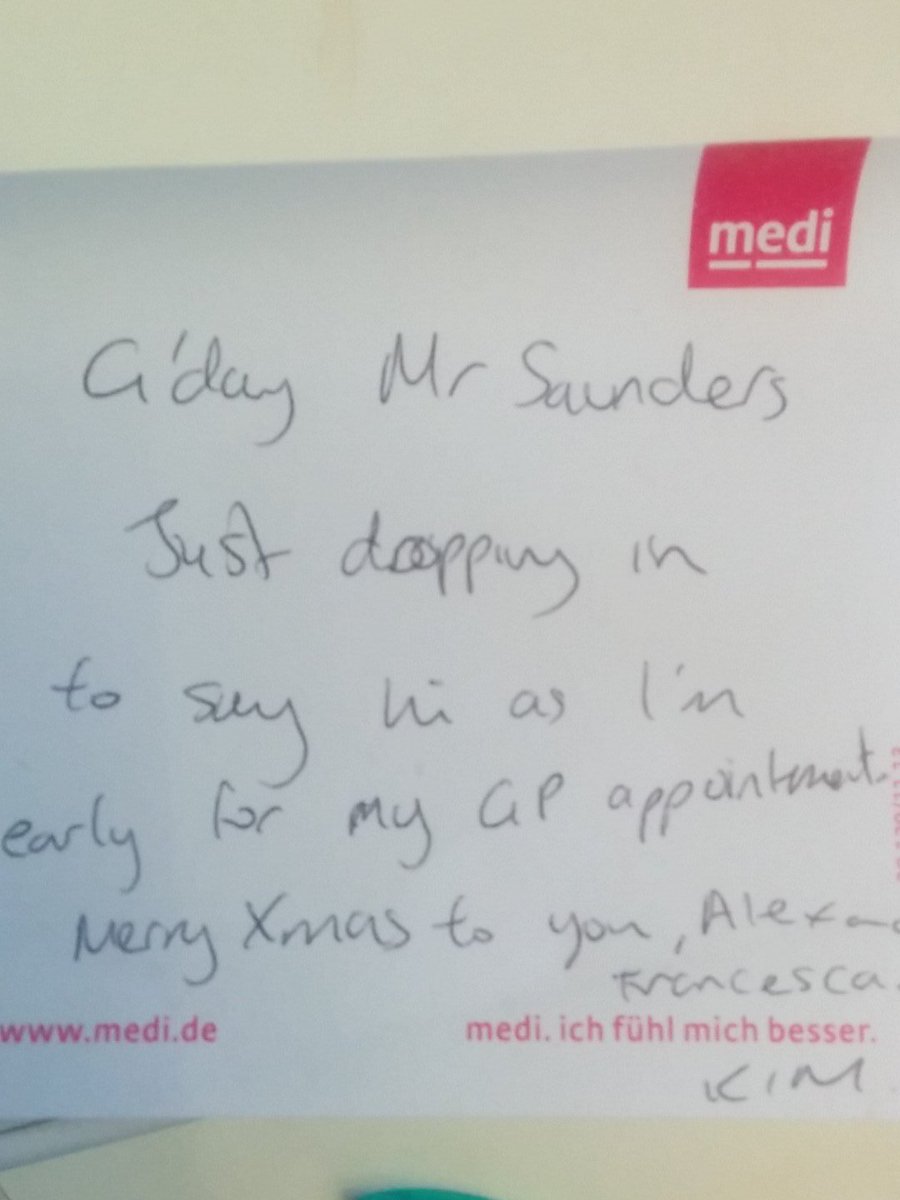 medi
G'day Mr Saunders
Just dropping in
to say hi as I'm
early for my GP appointment.
Merry Xmas to you,
Francesca.
www.medi.de
medi. ich fühl mich besser.
KIM